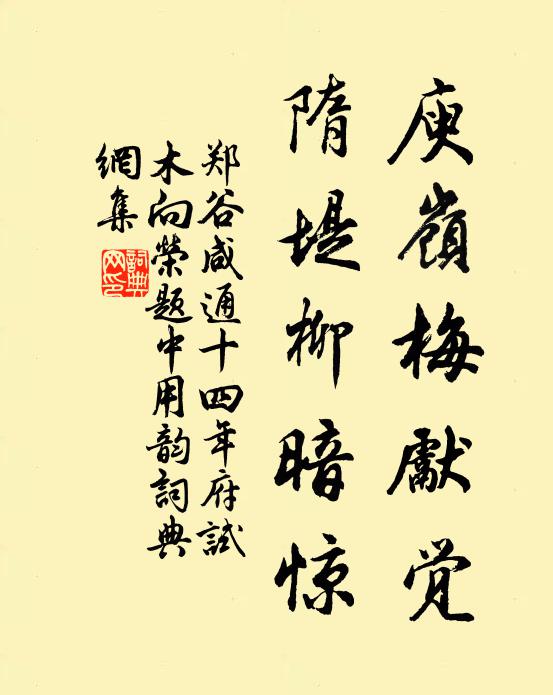 庾嶺梅獻覚
隋堤柳暗惊
郑谷咸通十四年府試
木向榮題中用韵詞典
網集
詞典網印